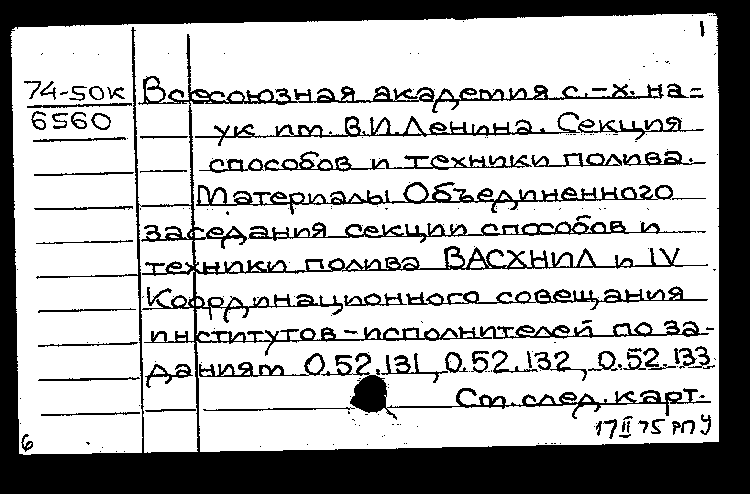 1
74-50к Всесоюзная академия с.-х. на=
6560 ук им. В.И.Ленина. Секция
способов и техники полива.
Материалы Объединенного
заседания секции способов и
техники полива ВАСХНИЛ и IV
Координационного совещания
институтов-исполнителей по за-
даниям 0.52.131, 0.52.132, 0.52.133
См.след.карт.
17 II 75 РПУ
6